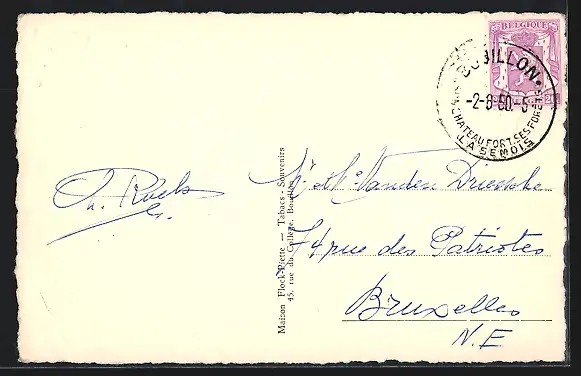 BELGIQUE
BOUILLON
-2-8-50.-5
SON CHATEAU FORT. SES FORETS
LA SEMOIS
Maison Flock-Piette — Tabacs - Souvenirs
45, rue du Collège, Bouillon
Mr et Me Vanden Driessche
74 rue des Patriotes
Bruxelles
N.E